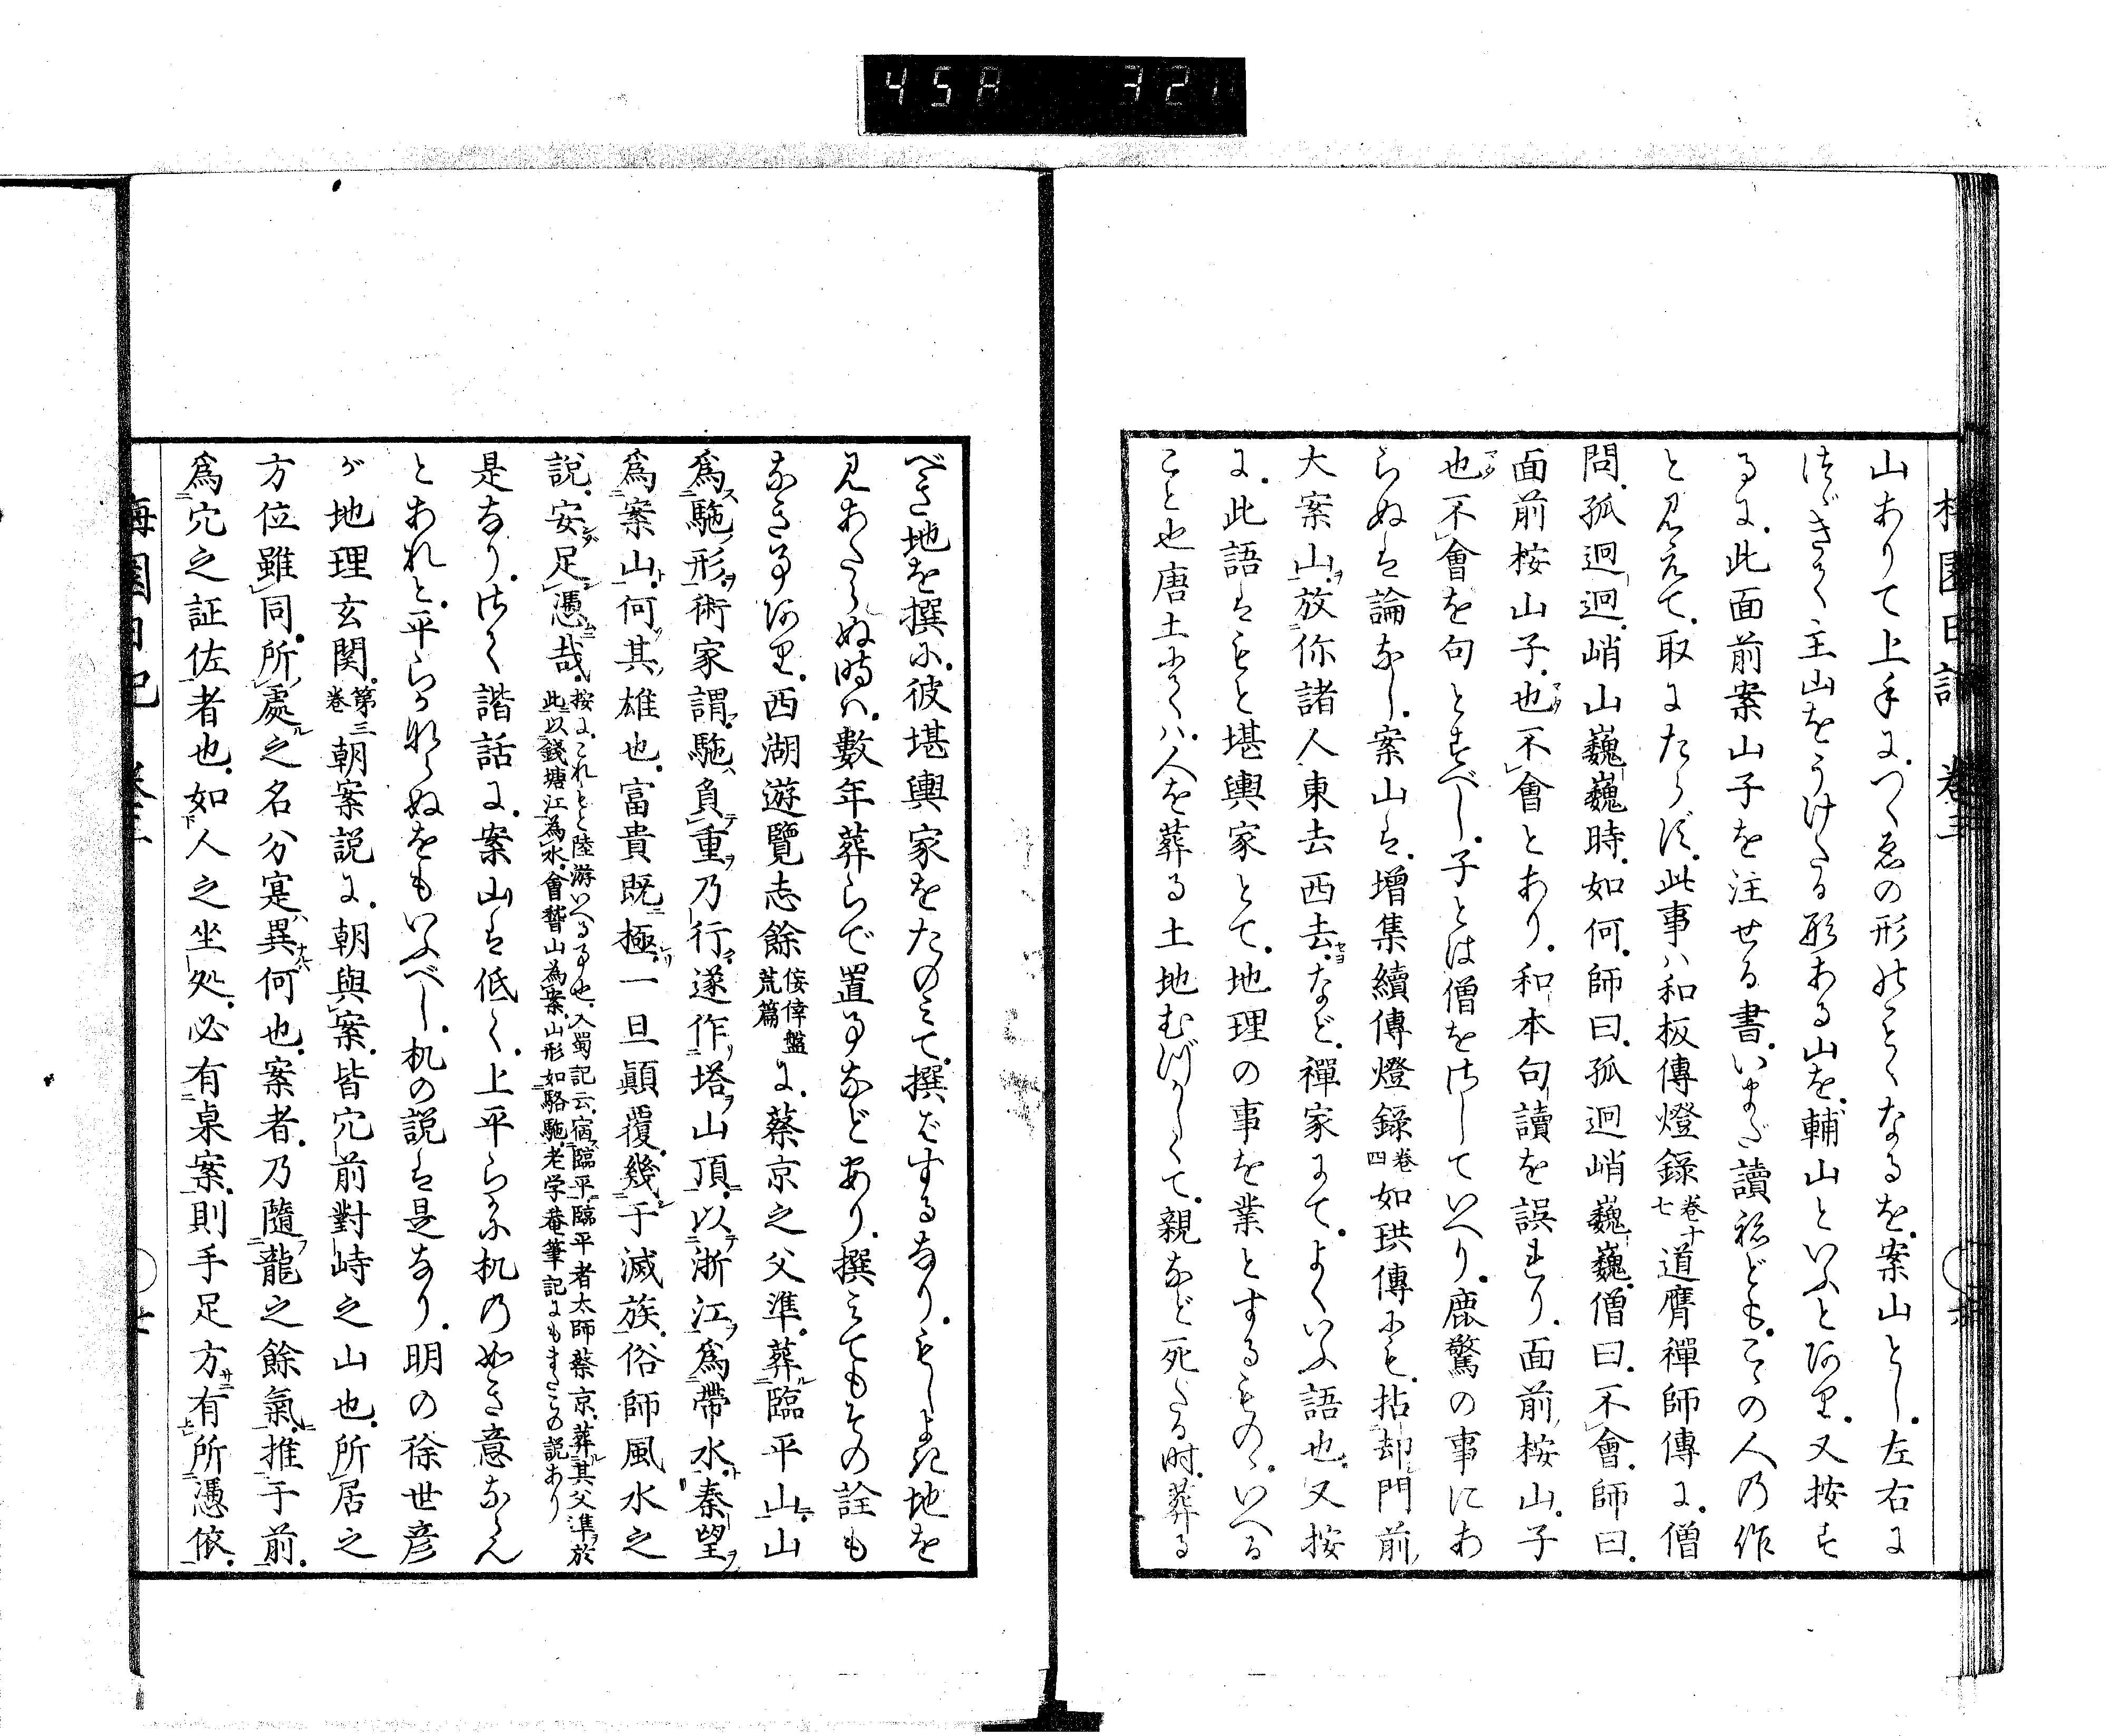 45A 32
梅園日記 卷三
山ありて上手に。つくゑの形のごとくなるを。案山とし。左右に
つゞきて主山をうけたる形ある山を。輔山といふとあり。又按ず
るに。此面前案山子を注せる書。いまだ讀ねども。こゝの人の作
と見えて。取にたらず。此事ハ和板傳燈錄卷十七道膺禪師傳に。僧
問。孤迥迥。峭山巍巍時。如何。師曰。孤迥峭巍巍。僧曰。不會。師曰。
面前桉山子。也不會とあり。和本句讀を誤れり。面前桉山。子
也不會を句とすべし。子とは僧をさしていへり。鹿驚の事にあ
らぬは論なし。案山は。增集續傳燈錄卷四如珙傳にも。拈却門前
大案山。放你諸人東去西去。など。禪家にて。よくいふ語也。又按
に。此語はもと堪輿家とて。地理の事を業とするものゝ。いへる
こと也唐土にてハ。人を葬る土地むづかしくて。親など死たる時。葬る
べき地を撰に。彼堪輿家をたのみて。撰ばするなり。もしよき地を
見あたらぬ時ハ。數年葬らで置事などあり。撰みてもその詮も
なき事あり。西湖遊覽志餘佞倖盤荒篇に。蔡京之父準。葬臨平山。山
爲駞形。術家謂。駞負重乃行。遂作塔山頂。以浙江爲帶水。秦望
爲案山。何其雄也。富貴既極。一旦顚覆。幾于滅族。俗師風水之
說。安足憑哉。按に。これもと陸游いへる事也。入蜀記云。宿臨平。臨平者太師蔡京。葬其父準於
此。以錢塘江爲水。會稽山爲案。山形如駱駞。老学菴筆記にもまたこの說あり
是なり。さて諧話に。案山は低く。上平らかに机の如き意ならん
とあれと。平らかならぬをもいふべし。机の説は是なり。明の徐世彦
が地理玄関。第三卷朝案説に。朝與案。皆穴前對峙之山也。所居之
方位雖同。所處之名分寔異何也。案者。乃隨龍之餘氣。推于前。
爲穴之証佐者也。如人之坐処。必有桌案。則手足方有所憑依。
梅園日記 卷三